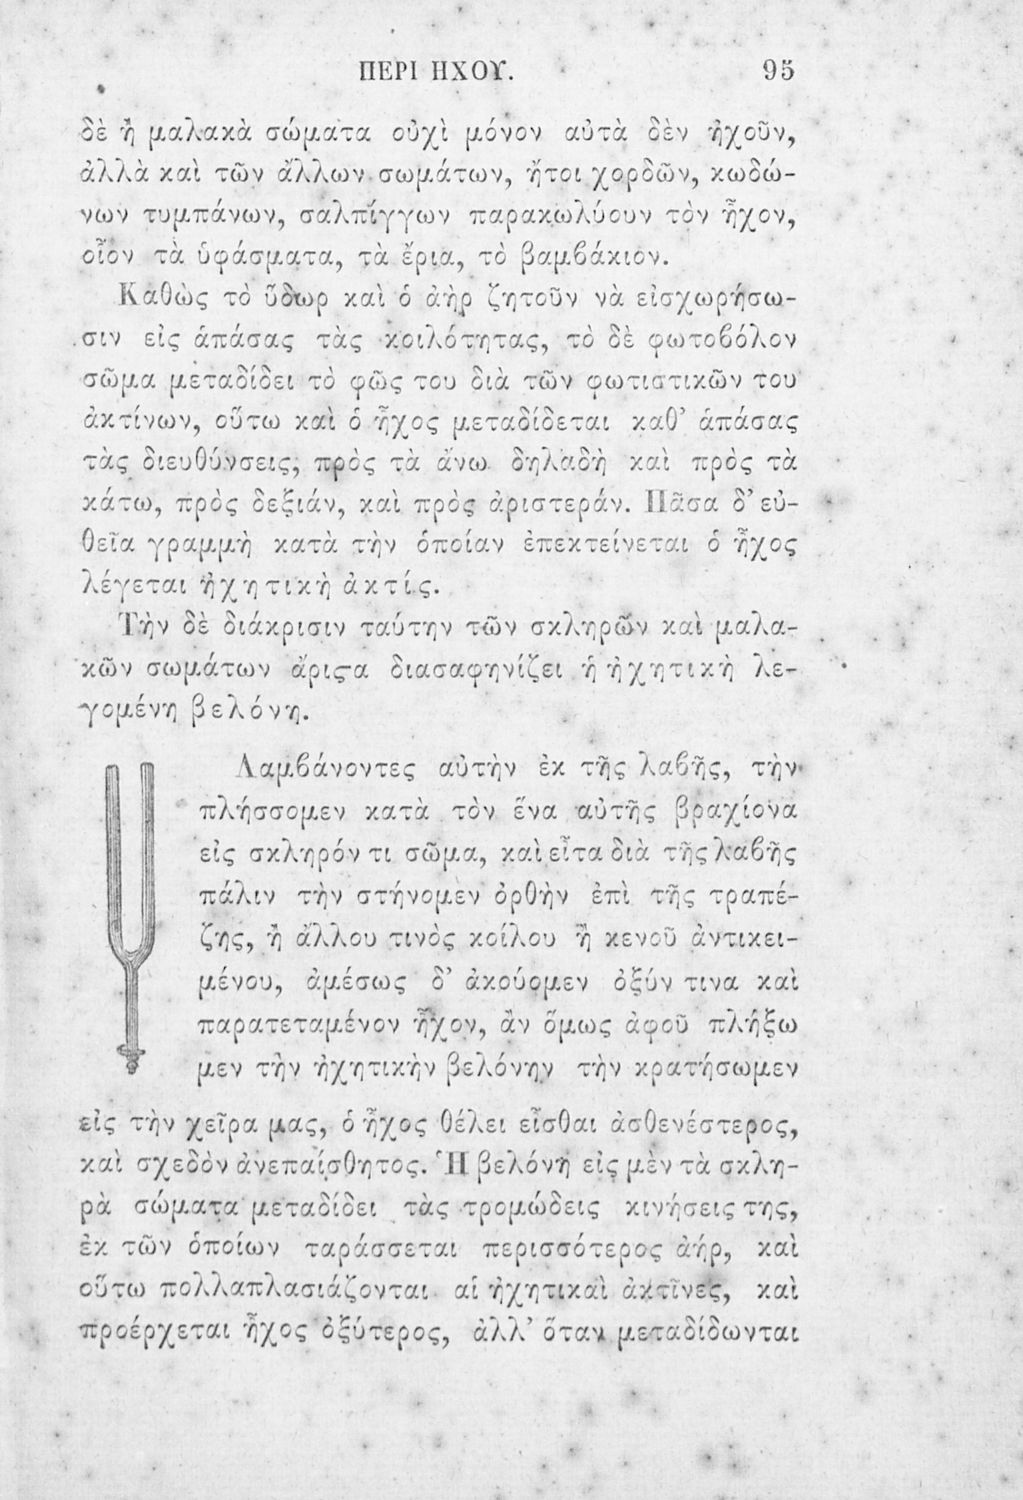 ΠΕΡΙ ΗΧΟΥ. 95
δὲ ἢ μαλακὰ σώματα οὐχὶ μόνον αὐτὰ δὲν ἠχοῦν,
ἀλλὰ καὶ τῶν ἄλλων σωμάτων, ἤτοι χορδῶν, κωδώ-
νων τυμπάνων, σαλπίγγων παρακωλύουν τὸν ἦχον,
οἷον τὰ ὑφάσματα, τὰ ἔρια, τὸ βαμβάκιον.
Καθὼς τὸ ὕδωρ καὶ ὁ ἀὴρ ζητοῦν νὰ εἰσχωρήσω-
σιν εἰς ἁπάσας τὰς κοιλότητας, τὸ δὲ φωτοβόλον
σῶμα μεταδίδει τὸ φῶς του διὰ τῶν φωτιστικῶν του
ἀκτίνων, οὕτω καὶ ὁ ἦχος μεταδίδεται καθ’ ἁπάσας
τὰς διευθύνσεις, πρὸς τὰ ἄνω δηλαδὴ καὶ πρὸς τὰ
κάτω, πρὸς δεξιάν, καὶ πρὸς ἀριστεράν. Πᾶσα δ’ εὐ-
θεῖα γραμμὴ κατὰ τὴν ὁποίαν ἐπεκτείνεται ὁ ἦχος
λέγεται ἠχητικὴ ἀκτίς.
Τὴν δὲ διάκρισιν ταύτην τῶν σκληρῶν καὶ μαλα-
κῶν σωμάτων ἄριϛα διασαφηνίζει ἡ ἠχητικὴ λε-
γομένη βελόνη.
Λαμβάνοντες αὐτὴν ἐκ τῆς λαβῆς, τὴν
πλήσσομεν κατὰ τὸν ἕνα αὐτῆς βραχίονα
εἰς σκληρόν τι σῶμα, καὶ εἶτα διὰ τῆς λαβῆς
πάλιν τὴν στήνομεν ὀρθὴν ἐπὶ τῆς τραπέ-
ζης, ἢ ἄλλου τινὸς κοίλου ἢ κενοῦ ἀντικει-
μένου, ἀμέσως δ’ ἀκούομεν ὀξύν τινα καὶ
παρατεταμένον ἦχον, ἂν ὅμως ἀφοῦ πλήξω
μεν τὴν ἠχητικὴν βελόνην τὴν κρατήσωμεν
εἰς τὴν χεῖρα μας, ὁ ἦχος θέλει εἶσθαι ἀσθενέστερος,
καὶ σχεδὸν ἀνεπαίσθητος. Ἡ βελόνη εἰς μὲν τὰ σκλη-
ρὰ σώματα μεταδίδει τὰς τρομώδεις κινήσεις της,
ἐκ τῶν ὁποίων ταράσσεται περισσότερος ἀήρ, καὶ
οὕτω πολλαπλασιάζονται αἱ ἠχητικαὶ ἀκτῖνες, καὶ
προέρχεται ἦχος ὀξύτερος, ἀλλ’ ὅταν μεταδίδωνται